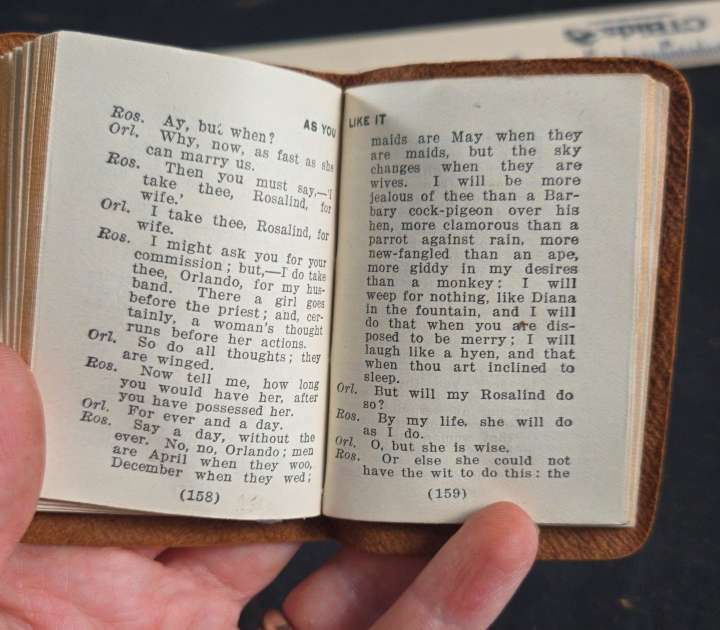 AS YOU
Ros. Ay, but when?
Orl. Why, now, as fast as she
can marry us.
Ros. Then you must say,—'I
take thee, Rosalind, for
wife.'
Orl. I take thee, Rosalind, for
wife.
Ros. I might ask you for your
commission; but,—I do take
thee, Orlando, for my hus-
band. There a girl goes
before the priest; and, cer-
tainly, a woman's thought
runs before her actions.
Orl. So do all thoughts; they
are winged.
Ros. Now tell me, how long
you would have her, after
you have possessed her.
Orl. For ever and a day.
Ros. Say a day, without the
ever. No, no, Orlando; men
are April when they woo,
December when they wed;
(158)
LIKE IT
maids are May when they
are maids, but the sky
changes when they are
wives. I will be more
jealous of thee than a Bar-
bary cock-pigeon over his
hen, more clamorous than a
parrot against rain, more
new-fangled than an ape,
more giddy in my desires
than a monkey: I will
weep for nothing, like Diana
in the fountain, and I will
do that when you are dis-
posed to be merry; I will
laugh like a hyen, and that
when thou art inclined to
sleep.
Orl. But will my Rosalind do
so?
Ros. By my life, she will do
as I do.
Orl. O, but she is wise.
Ros. Or else she could not
have the wit to do this: the
(159)